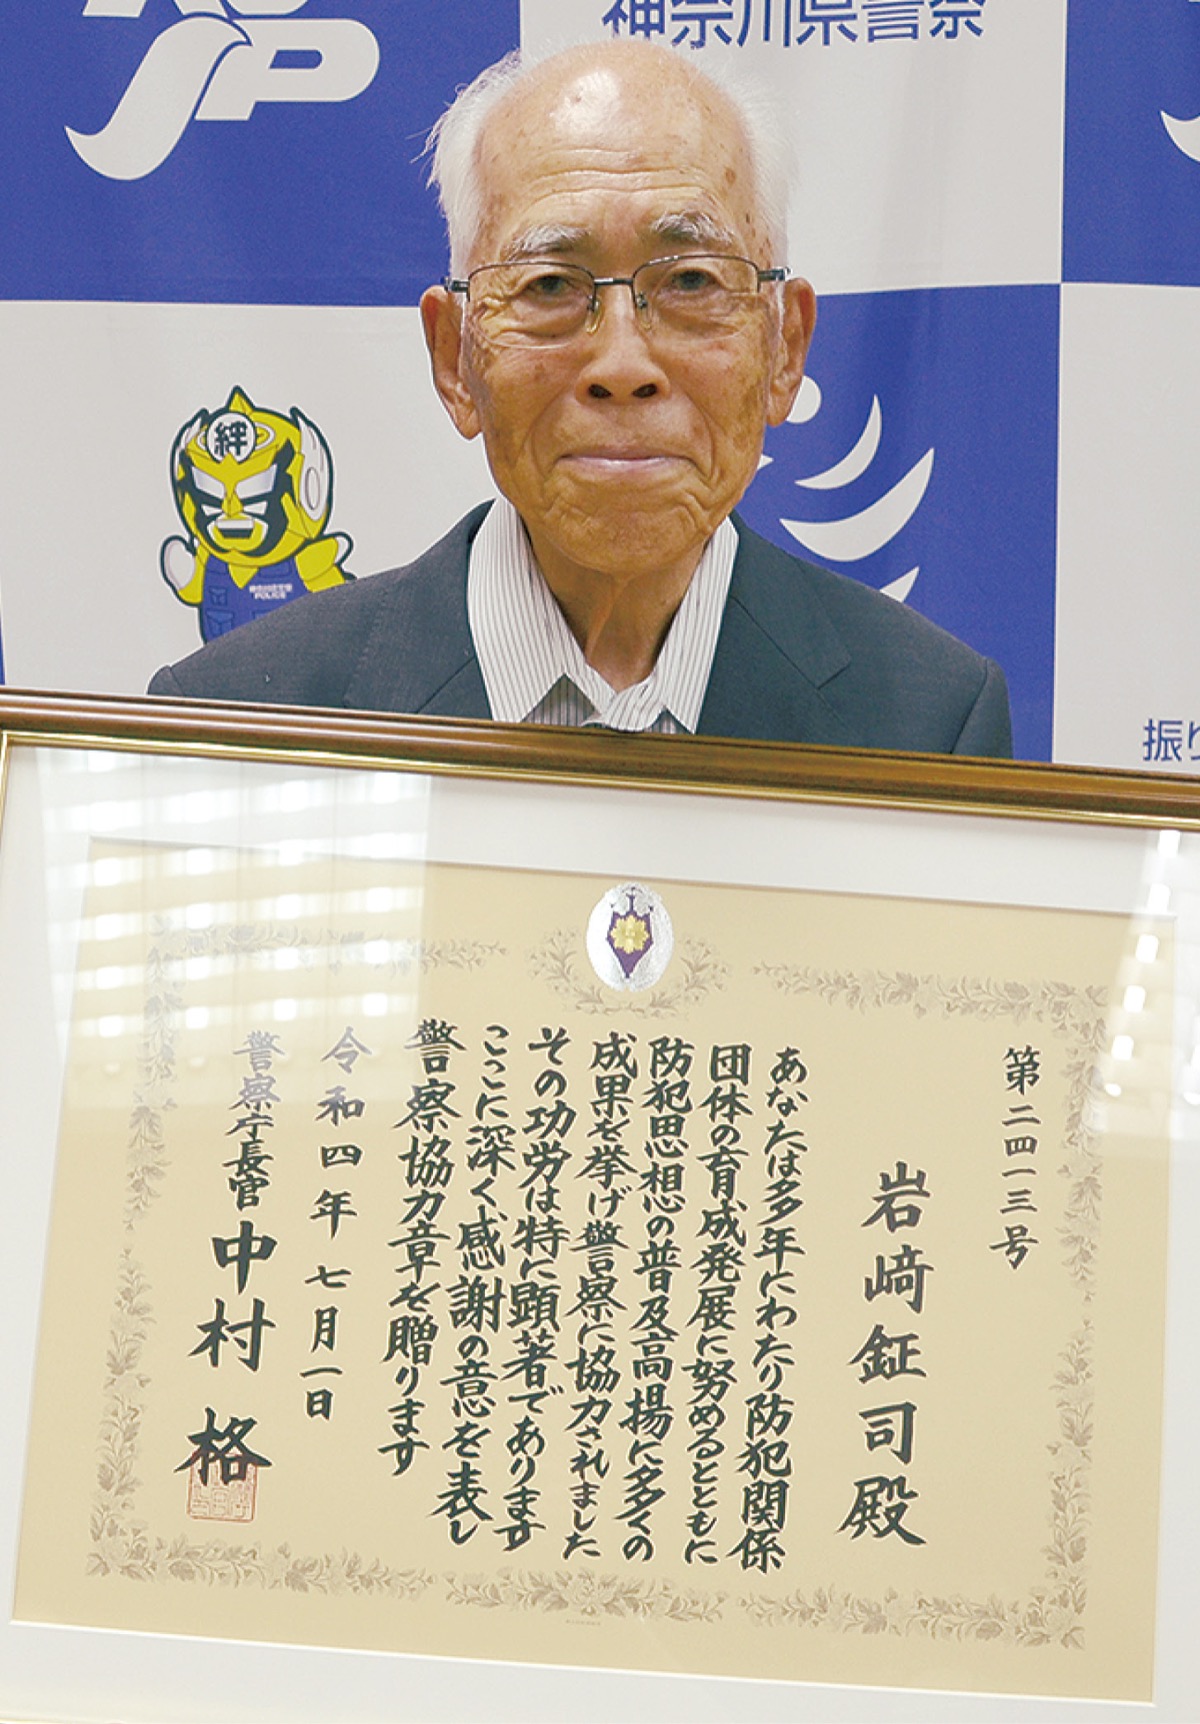 神奈川県警察
絆
POLICE
振り
第二四一三号
岩﨑鉦司殿
あなたは多年にわたり防犯関係
団体の育成発展に努めるとともに
防犯思想の普及高揚に多くの
成果を挙げ警察に協力されました
その功労は特に顕著であります
ここに深く感謝の意を表し
警察協力章を贈ります
令和四年七月一日
警察庁長官 中村 格